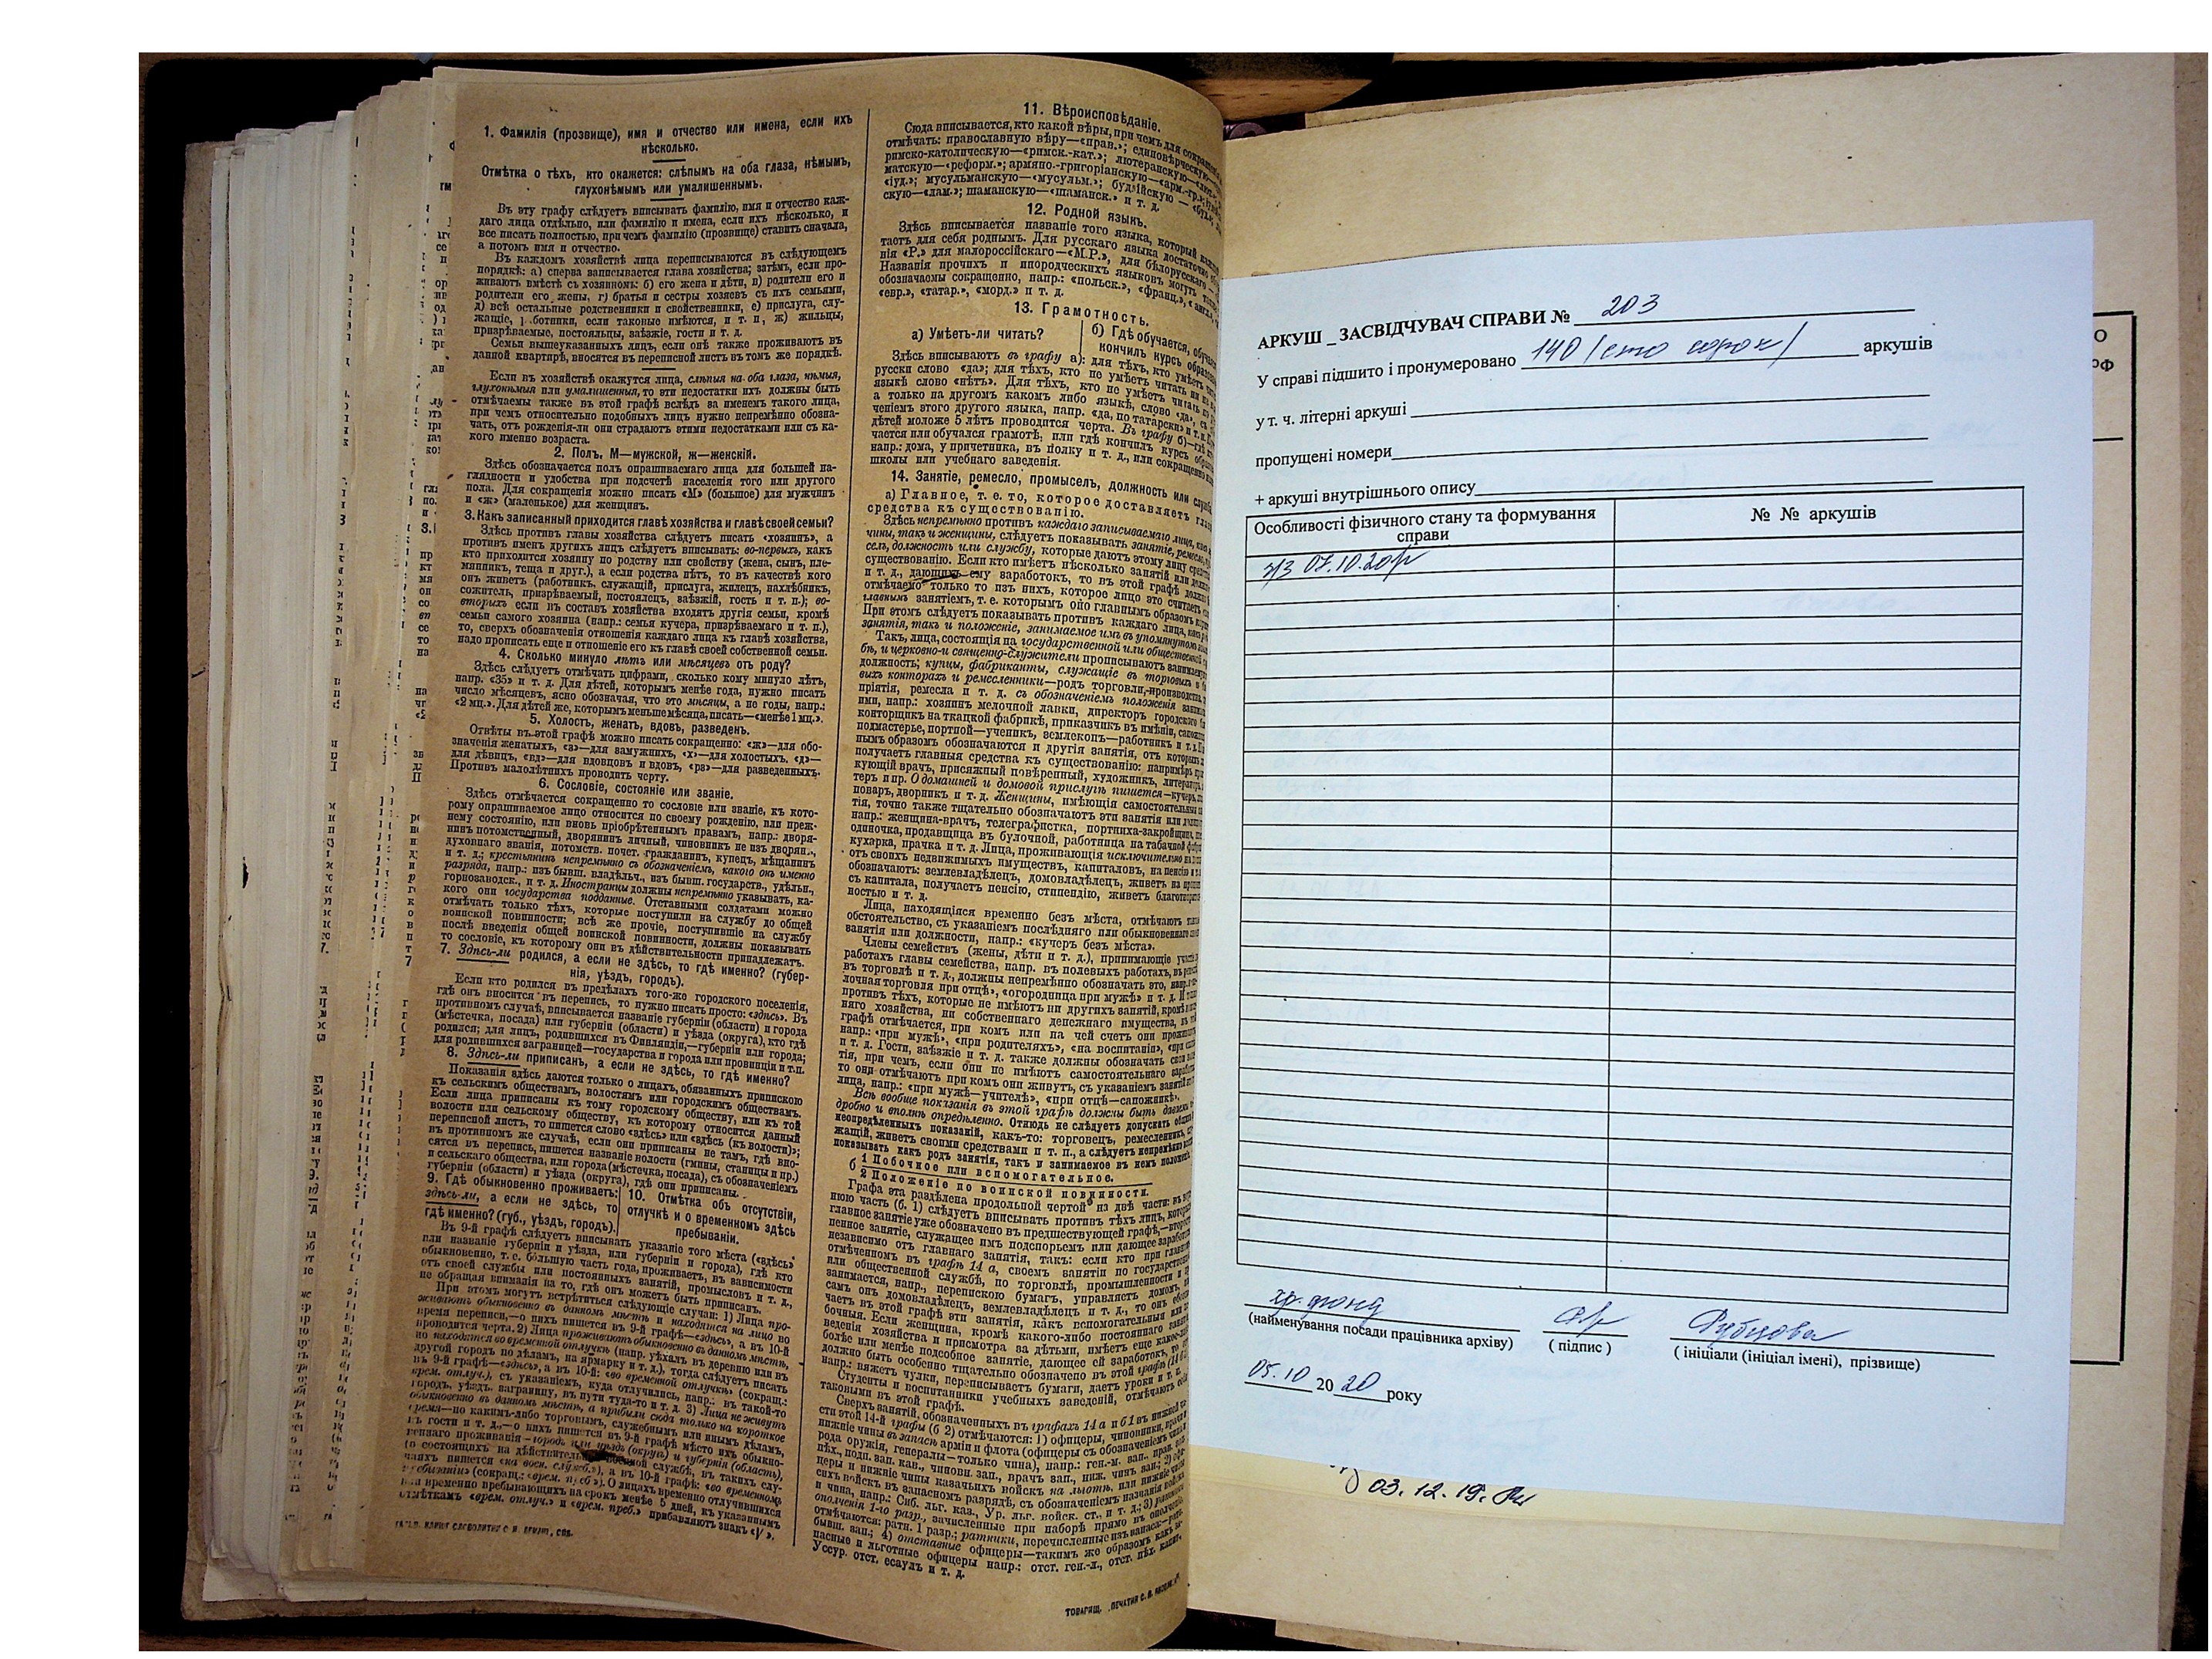 1. Фамилія (прозвище), имя и отчество или имена, если ихъ
нѣсколько.
Отмѣтка о тѣхъ, кто окажется: слѣпымъ на оба глаза, нѣмымъ,
глухонѣмымъ или умалишеннымъ.
Въ эту графу слѣдуетъ вписывать фамилію, имя и отчество каж-
даго лица отдѣльно, или фамилію и имена, если ихъ нѣсколько, и
все писать полностью, при чемъ фамилію (прозвище) ставить сначала,
а потомъ имя и отчество.
Въ каждомъ хозяйствѣ лица переписываются въ слѣдующемъ
порядкѣ: а) сперва записывается глава хозяйства; затѣмъ, если про-
живаютъ вмѣстѣ съ хозяиномъ: б) его жена и дѣти, в) родители его и
родители его жены, г) братья и сестры хозяевъ съ ихъ семьями,
д) всѣ остальные родственники и свойственники, е) прислуга, слу-
жащіе, работники, если таковые имѣются, и т. п., ж) жильцы,
призрѣваемые, постояльцы, заѣзжіе, гости и т. д.
Семьи вышеуказанныхъ лицъ, если онѣ также проживаютъ въ
данной квартирѣ, вносятся въ переписной листъ въ томъ же порядкѣ.
Если въ хозяйствѣ окажутся лица, слѣпыя на оба глаза, нѣмыя,
глухонѣмыя или умалишенныя, то эти недостатки ихъ должны быть
отмѣчаемы также въ этой графѣ вслѣдъ за именемъ такого лица,
при чемъ относительно подобныхъ лицъ нужно непремѣнно обозна-
чать, отъ рожденія-ли они страдаютъ этими недостатками или съ ка-
кого именно возраста.
2. Полъ, М—мужской, ж—женскій.
Здѣсь обозначается полъ опрашиваемаго лица для большей на-
глядности и удобства при подсчетѣ населенія того или другого
пола. Для сокращенія можно писать «М» (большое) для мужчинъ
и «ж» (маленькое) для женщинъ.
3. Какъ записанный приходится главѣ хозяйства и главѣ своей семьи?
Здѣсь противъ главы хозяйства слѣдуетъ писать «хозяинъ», а
противъ именъ другихъ лицъ слѣдуетъ вписывать: во-первыхъ, какъ
кто приходится хозяину по родству или свойству (жена, сынъ, пле-
мянникъ, теща и друг.), а если родства нѣтъ, то въ качествѣ кого
онъ живетъ (работникъ, служащій, прислуга, жилецъ, нахлѣбникъ,
сожитель, призрѣваемый, постоялецъ, заѣзжій, гость и т. п.); во-
вторыхъ если въ составъ хозяйства входятъ другія семьи, кромѣ
семьи самого хозяина (напр.: семья кучера, призрѣваемаго и т. п.),
то, сверхъ обозначенія отношенія каждаго лица къ главѣ хозяйства,
надо прописать еще и отношеніе его къ главѣ своей собственной семьи.
4. Сколько минуло лѣтъ или мѣсяцевъ отъ роду?
Здѣсь слѣдуетъ отмѣчать цифрами, сколько кому минуло лѣтъ,
напр. «35» и т. д. Для дѣтей, которымъ менѣе года, нужно писать
число мѣсяцевъ, ясно обозначая, что это мѣсяцы, а не годы, напр.:
«2 мц.». Для дѣтей же, которымъ меньше мѣсяца, писать—«менѣе 1 мц.».
5. Холостъ, женатъ, вдовъ, разведенъ.
Отвѣты въ этой графѣ можно писать сокращенно: «ж»—для обо-
значенія женатыхъ, «з»—для замужнихъ, «х»—для холостыхъ, «д»—
для дѣвицъ, «вд»—для вдовцовъ и вдовъ, «рз»—для разведенныхъ.
Противъ малолѣтнихъ проводить черту.
6. Сословіе, состояніе или званіе.
Здѣсь отмѣчается сокращенно то сословіе или званіе, къ кото-
рому опрашиваемое лицо относится по своему рожденію, или преж-
нему состоянію, или вновь пріобрѣтеннымъ правамъ, напр.: дворя-
нинъ потомственный, дворянинъ личный, чиновникъ не изъ дворян.,
духовнаго званія, потомств. почет. гражданинъ, купецъ, мѣщанинъ
и т. д.; крестьянинъ непремѣнно съ обозначеніемъ, какого онъ именно
разряда, напр.: изъ бывш. владѣльч., изъ бывш. государств., удѣльн.,
горнозаводск., и т. д. Иностранцы должны непремѣнно указывать, ка-
кого они государства подданные. Отставными солдатами можно
отмѣчать только тѣхъ, которые поступили на службу до общей
воинской повинности; всѣ же прочіе, поступившіе на службу
послѣ введенія общей воинской повинности, должны показывать
то сословіе, къ которому они въ дѣйствительности принадлежатъ.
7. Здѣсь-ли родился, а если не здѣсь, то гдѣ именно? (губер-
нія, уѣздъ, городъ).
Если кто родился въ предѣлахъ того-же городского поселенія,
гдѣ онъ вносится въ перепись, то нужно писать просто: «здѣсь». Въ
противномъ случаѣ, вписывается названіе губерніи (области) и города
(мѣстечка, посада) или губерніи (области) и уѣзда (округа), кто гдѣ
родился; для лицъ, родившихся въ Финляндіи,—губерніи или города;
для родившихся заграницей—государства и города или провинціи и т.п.
8. Здѣсь-ли приписанъ, а если не здѣсь, то гдѣ именно?
Показанія здѣсь даются только о лицахъ, обязанныхъ припискою
къ сельскимъ обществамъ, волостямъ или городскимъ обществамъ.
Если лица приписаны къ тому городскому обществу, или къ той
волости или сельскому обществу, къ которому относится данный
переписной листъ, то пишется слово «здѣсь» или «здѣсь (къ волости)»;
въ противномъ же случаѣ, если они приписаны не тамъ, гдѣ вно-
сятся въ перепись, пишется названіе волости (гмины, станицы и пр.)
и сельскаго общества, или города (мѣстечка, посада), съ обозначеніемъ
губерніи (области) и уѣзда (округа), гдѣ они приписаны.
9. Гдѣ обыкновенно проживаетъ:
здѣсь-ли, а если не здѣсь, то
гдѣ именно? (губ., уѣздъ, городъ).
10. Отмѣтка объ отсутствіи,
отлучкѣ и о временномъ здѣсь
пребываніи.
Въ 9-й графѣ слѣдуетъ вписывать указаніе того мѣста («здѣсь»
или названіе губерніи и уѣзда, или губерніи и города), гдѣ кто
обыкновенно, т. е. большую часть года, проживаетъ, въ зависимости
отъ своей службы или постоянныхъ занятій, промысловъ и т. д.,
не обращая вниманія на то, гдѣ онъ можетъ быть приписанъ.
При этомъ могутъ встрѣтиться слѣдующіе случаи: 1) Лица про-
живаютъ обыкновенно въ данномъ мѣстѣ и находятся на лицо во
время переписи,—о нихъ пишется въ 9-й графѣ—«здѣсь», а въ 10-й
проводится черта. 2) Лица проживаютъ обыкновенно въ данномъ мѣстѣ,
но находятся во временной отлучкѣ (напр. уѣхалъ въ деревню или въ
другой городъ по дѣламъ, на ярмарку и т. д.), тогда слѣдуетъ писать
въ 9-й графѣ—«здѣсь», а въ 10-й: «во временной отлучкѣ» (сокращ.:
врем. отлуч.), съ указаніемъ, куда отлучились, напр.: въ такой-то
городъ, уѣздъ, заграницу, въ пути туда-то и т. д. 3) Лица не живутъ
обыкновенно въ данномъ мѣстѣ, а прибыли сюда только на короткое
время—по какимъ-либо торговымъ, служебнымъ или инымъ дѣламъ,
въ гости и т. д.,—о нихъ пишется въ 9-й графѣ мѣсто ихъ обыкно-
веннаго проживанія—городъ или уѣздъ (округъ) и губернія (область),
(о состоящихъ на дѣйствительной военной службѣ, въ такихъ слу-
чаяхъ пишется «на воен. служб.»), а въ 10-й графѣ: «во временномъ
пребываніи» (сокращ.: «врем. преб»). О лицахъ временно отлучившихся
или временно пребывающихъ на срокъ менѣе 5 дней, къ указаннымъ
отмѣткамъ «врем. отлуч.» и «врем. преб.» прибавляютъ знакъ «V».
11. Вѣроисповѣданіе.
Сюда вписывается, кто какой вѣры, при чемъ для сокращенія
отмѣчать: православную вѣру—«прав.»; единовѣрческую
римско-католическую—«римск.-кат.»; лютеранскую—«лют.»
матскую—«реформ.»; армяно.-григоріанскую—«арм.-гр.»;
«іуд.»; мусульманскую—«мусульм.»; буддійскую —
скую—«лам.»; шаманскую—«шаманск.» и т. д.
12. Родной языкъ.
Здѣсь вписывается названіе того языка, который каждый
таетъ для себя роднымъ. Для русскаго языка достаточно
нія «Р.» для малороссійскаго—«М.Р.», для бѣлорусскаго
Названія прочихъ и инородческихъ языковъ могутъ
обозначаемы сокращенно, напр.: «польск.», «франц.»,
«евр.», «татар.», «морд.» и т. д.
13. Грамотность.
а) Умѣетъ-ли читать?
б) Гдѣ обучается,
кончилъ курсъ
Здѣсь вписываютъ въ графу а): для тѣхъ, кто умѣетъ
русски слово «да»; для тѣхъ, кто не умѣетъ читать ни на
языкѣ слово «нѣтъ». Для тѣхъ, кто не умѣетъ читать
а только на другомъ какомъ либо языкѣ, слово «да»,
ченіемъ этого другого языка, напр. «да, по татарски» и т. п.
дѣтей моложе 5 лѣтъ проводится черта. Въ графу б)—гдѣ
чается или обучался грамотѣ, или гдѣ кончилъ курсъ
напр.: дома, у причетника, въ полку и т. д., или сокращенно
школы или учебнаго заведенія.
14. Занятіе, ремесло, промыселъ, должность или служба.
а) Главное, т. е. то, которое доставляетъ
средства къ существованію.
Здѣсь непремѣнно противъ каждаго записываемаго лица,
чины, такъ и женщины, слѣдуетъ показывать занятіе,
селъ, должность или службу, которые даютъ этому лицу
существованію. Если кто имѣетъ нѣсколько занятій или
и т. д., дающихъ ему заработокъ, то въ этой графѣ
отмѣчаемо только то изъ нихъ, которое лицо это считаетъ
главнымъ занятіемъ, т. е. которымъ оно главнымъ образомъ
При этомъ слѣдуетъ показывать противъ каждаго лица,
занятія, такъ и положеніе, занимаемое имъ въ упомянутомъ
Такъ, лица, состоящія на государственной или общественной
бѣ, и церковно-и священно-служители прописываютъ
должность; купцы, фабриканты, служащіе въ торговыхъ
выхъ конторахъ и ремесленники—родъ торговли, производства,
пріятія, ремесла и т. д. съ обозначеніемъ положенія
ими, напр.: хозяинъ мелочной лавки, директоръ городского
конторщикъ на ткацкой фабрикѣ, приказчикъ въ имѣніи,
подмастерье, портной—ученикъ, землекопъ—работникъ и т. д.
нымъ образомъ обозначаются и другія занятія, отъ которыхъ
получаетъ главныя средства къ существованію: напримѣръ
кующій врачъ, присяжный повѣренный, художникъ,
теръ и пр. О домашней и домовой прислугѣ пишется—кучеръ,
поваръ, дворникъ и т. д. Женщины, имѣющія самостоятельныя
тія, точно также тщательно обозначаютъ эти занятія или
напр.: женщина-врачъ, телеграфистка, портниха-закройщица,
одиночка, продавщица въ булочной, работница на табачной
кухарка, прачка и т. д. Лица, проживающія исключительно
отъ своихъ недвижимыхъ имуществъ, капиталовъ, на пенсію
обозначаютъ: землевладѣлецъ, домовладѣлецъ, живетъ на
съ капитала, получаетъ пенсію, стипендію, живетъ
ностью и т. д.
Лица, находящіяся временно безъ мѣста, отмѣчаютъ
обстоятельство, съ указаніемъ послѣдняго или обыкновеннаго
занятія или должности, напр.: «кучеръ безъ мѣста».
Члены семействъ (жены, дѣти и т. д.), принимающіе
работахъ главы семейства, напр. въ полевыхъ работахъ,
въ торговлѣ и т. д., должны непремѣнно обозначать это,
лочная торговля при отцѣ», «огородница при мужѣ» и т. д.
противъ тѣхъ, которые не имѣютъ ни другихъ занятій, кромѣ
няго хозяйства, ни собственнаго денежнаго имущества,
графѣ отмѣчается, при комъ или на чей счетъ они
напр.: «при мужѣ», «при родителяхъ», «на воспитаніи»,
и т. д. Гости, заѣзжіе и т. д. также должны обозначать свои
тія, при чемъ, если они не имѣютъ самостоятельнаго
то они отмѣчаютъ при комъ они живутъ, съ указаніемъ занятій
лица, напр.: «при мужѣ—учителѣ», «при отцѣ—сапожникѣ».
Всѣ вообще показанія въ этой графѣ должны быть
дробно и вполнѣ опредѣленно. Отнюдь не слѣдуетъ допускать
неопредѣленныхъ показаній, какъ-то: торговецъ, ремесленникъ,
жащій, живетъ своими средствами и т. п., а слѣдуетъ непремѣнно
показывать какъ родъ занятія, такъ и занимаемое въ немъ
б 1 Побочное или вспомогательное.
2 Положеніе по воинской повинности.
Графа эта раздѣлена продольной чертой изъ двѣ части:
нюю часть (б. 1) слѣдуетъ вписывать противъ тѣхъ лицъ,
главное занятіе уже обозначено въ предшествующей графѣ,—
пенное занятіе, служащее имъ подспорьемъ или дающее
независимо отъ главнаго занятія, такъ: если кто при
отмѣченномъ въ графѣ 14 а, своемъ занятіи по
или общественной службѣ, по торговлѣ, промышленности
занимается, напр., перепискою бумагъ, управляетъ домомъ,
самъ онъ домовладѣлецъ, землевладѣлецъ и т. д., то онъ
чаетъ въ этой графѣ эти занятія, какъ вспомогательныя или
бочныя. Если женщина, кромѣ какого-либо постояннаго
веденія хозяйства и присмотра за дѣтьми, имѣетъ еще
болѣе или менѣе подобное занятіе, дающее ей заработокъ, то
должно быть особенно тщательно обозначено въ этой графѣ
напр.: вяжетъ чулки, переписываетъ бумаги, даетъ уроки и т. п.
Студенты и воспитанники учебныхъ заведеній, отмѣчаютъ
таковыми въ этой графѣ.
Сверхъ занятій, обозначенныхъ въ графахъ 14 а и б 1 въ нижней
сти этой 14-й графы (б 2) отмѣчаются: 1) офицеры, чиновники,
нижніе чины въ запасѣ арміи и флота (офицеры съ обозначеніемъ
рода оружія, генералы—только чина), напр.: ген.-м. зап.,
пѣх., подп. зап. кав., чиновн. зап., врачъ зап., ниж. чинъ зап.; 2)
церы и нижніе чины казачьихъ войскъ на льготѣ, или
сихъ войскъ въ запасномъ разрядѣ, съ обозначеніемъ названія
и чина, напр.: Сиб. льг. каз., Ур. льг. войск. ст., и т. д.; 3)
ополченія 1-го разр., зачисленные при наборѣ прямо въ
отмѣчаются: ратн. 1 разр.; ратники, перечисленные изъ запаса—
бывш. зап.; 4) отставные офицеры—такимъ же образомъ какъ
пасные и льготные офицеры напр.: отст. ген.-л., отст. пѣх. капит.,
Уссур. отст. есаулъ и т. д.
АРКУШ _ ЗАСВІДЧУВАЧ СПРАВИ № 203
У справі підшито і пронумеровано 140 /сто сорок/ аркушів
у т. ч. літерні аркуші
пропущені номери
+ аркуші внутрішнього опису
Особливості фізичного стану та формування
справи
№ № аркушів
07.10.20р
хр. фонд
(найменування посади працівника архіву)
( підпис )
Рубцова
( ініціали (ініціал імені), прізвище)
05.10 2020 року
03.12.19.